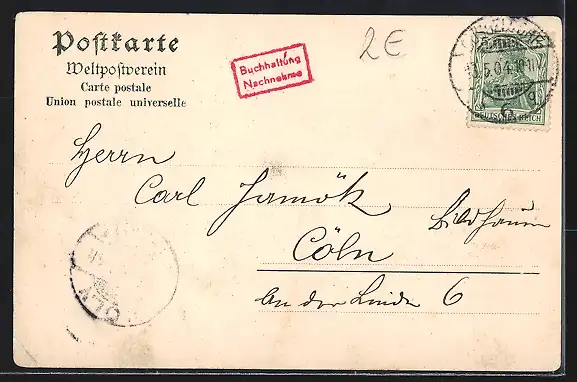 Postkarte
Weltpostverein
Carte postale
Union postale universelle
Buchhaltung
Nachnahme
2E
5.04.
DEUTSCHES REICH
Herrn
Carl Jamök Bildhauer
Cöln
An der Linde 6